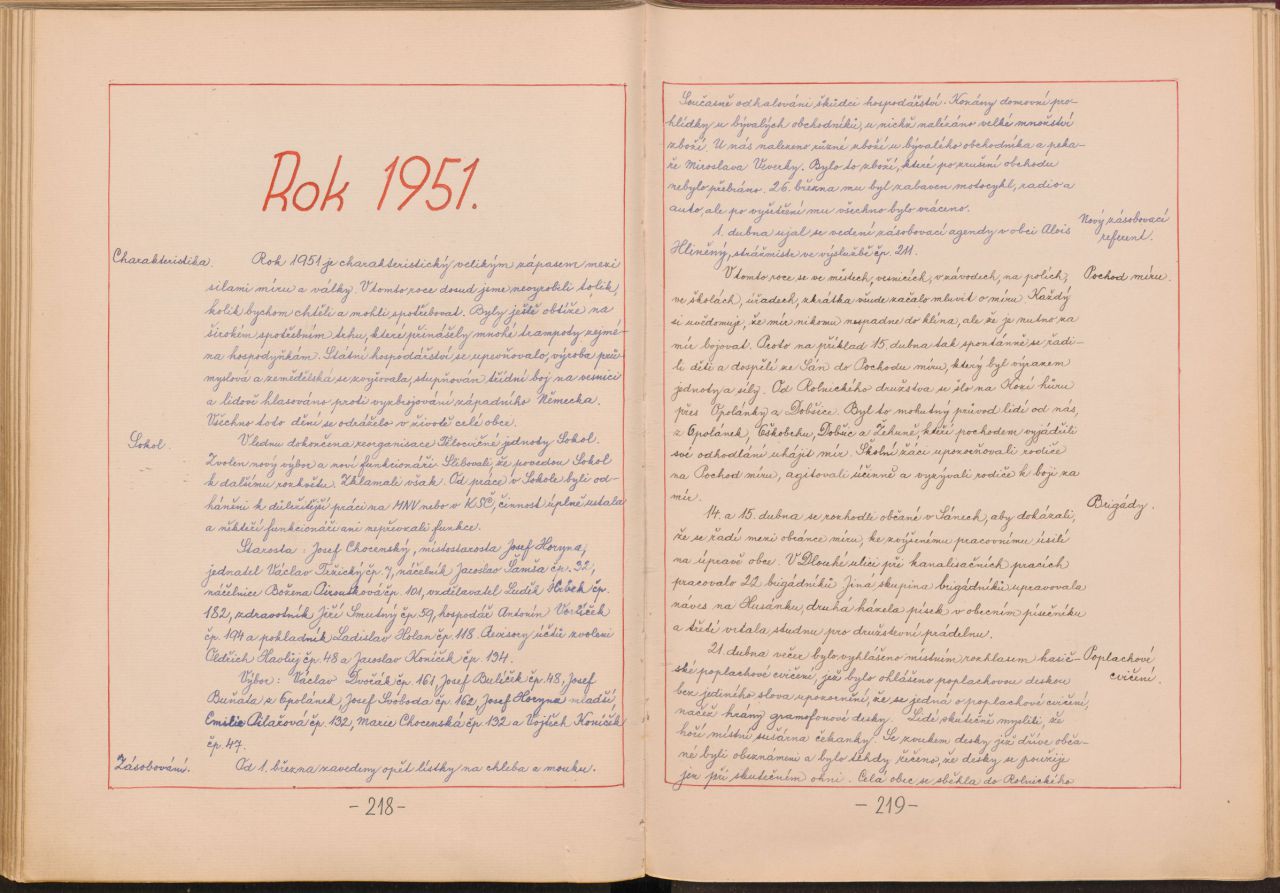 Rok 1951.
Charakteristika.
Rok 1951 je charakteristický velikým zápasem mezi
silami míru a války. V tomto roce dosud jsme nevyrobili tolik,
kolik bychom chtěli a mohli spotřebovat. Byly ještě obtíže na
širokém spotřebním trhu, které přinášely mnohé trampoty zejmé-
na hospodyňkám. Státní hospodářství se upevňovalo, výroba prů-
myslová a zemědělská se zvyšovala, stupňován třídní boj na vesnici
a lidově hlasováno proti vyzbrojování západního Německa.
Všechno toto dění se odráželo v životě celé obce.
Sokol.
V lednu dokončena reorganisace Tělocvičné jednoty Sokol.
Zvolen nový výbor a noví funkcionáři. Slibovali že povedou Sokol
k dalšímu rozkvětu. Zklamali však. Od práce v Sokole byli od-
háněni k důležitější práci na MNV nebo v KSČ, činnost úplně ustala
a někteří funkcionáři ani nepřevzali funkce.
Starosta: Josef Chocenský, místostarosta Josef Horyna,
jednatel Václav Tržický čp. 7, náčelník Jaroslav Šamša čp. 32,
náčelnice Božena Piroutková čp. 101, vzdělavatel Luděk Hrbek čp.
182, zdravotník Jiří Smutný čp. 59, hospodář Antonín Vorlíček
čp. 194 a pokladník Ladislav Holan čp. 118. Revisory účtů zvoleni
Oldřich Havlůj čp. 48 a Jaroslav Koníček čp. 134.
Výbor: Václav Dvořák čp. 161, Josef Bulíček čp. 48, Josef
Buňata z Opolánek, Josef Svoboda čp. 162, Josef Horyna mladší,
Emilie Pilařová čp. 132, Marie Chocenská čp. 132 a Vojtěch Koníček
čp. 47.
Zásobování.
Od 1. března zavedeny opět lístky na chleba a mouku.
- 218 -
Současně odhalováni škůdci hospodářství. Konány domovní pro-
hlídky u bývalých obchodníků, u nichž nalézáno velké množství
zboží. U nás nalezeno různé zboží u bývalého obchodníka a peka-
ře Miroslava Veverky. Bylo to zboží, které po zrušení obchodu
nebylo přebráno. 26. března mu byl zabaven motocykl, radio a
auto, ale po vyšetření mu všechno bylo vráceno.
Nový zásobovací
referent.
1. dubna ujal se vedení zásobovací agendy v obci Alois
Hliněný, strážmistr ve výslužbě čp. 211.
Pochod míru.
V tomto roce se ve městech, vesnicích, v závodech, na polích,
ve školách, úřadech, zkrátka všude začalo mluvit o míru. Každý
si uvědomuje, že mír nikomu nespadne do klína, ale že je nutno za
mír bojovat. Proto na příklad 15. dubna tak spontánně se řadi-
li děti a dospělí ze Sán do Pochodu míru, který byl výrazem
jednoty a síly. Od Rolnického družstva se šlo na Kozí hůru
přes Opolánky a Dobšice. Byl to mohutný průvod lidí od nás,
z Opolánek, Oškobrhu, Dobšic a Žehuně, kteří pochodem vyjádřili
své odhodlání uhájit mír. Školní žáci upozorňovali rodiče
na Pochod míru, agitovali účinně a vyzývali rodiče k boji za
mír.
Brigády.
14. a 15. dubna se rozhodli občané v Sánech, aby dokázali,
že se řadí mezi obránce míru, ke zvýšenému pracovnímu úsilí
na úpravě obce. V Dlouhé ulici při kanalisačních pracích
pracovalo 22 brigádníků. Jiná skupina brigádníků upravovala
náves na Husánku, druhá házela písek v obecním písečníku
a třetí vrtala studnu pro družstevní prádelnu.
Poplachové
cvičení.
21. dubna večer bylo vyhlášeno místním rozhlasem hasič-
ské poplachové cvičení, jež bylo ohlášeno poplachovou deskou
bez jediného slova upozornění, že se jedná o poplachové cvičení,
načež hrány gramofonové desky. Lidé skutečně mysleli, že
hoří místní sušárna čekanky. Se zvukem desky již dříve obča-
né byli obeznámeni a bylo tehdy řečeno, že desky se použije
jen při skutečném ohni. Celá obec se sběhla do Rolnického
- 219 -